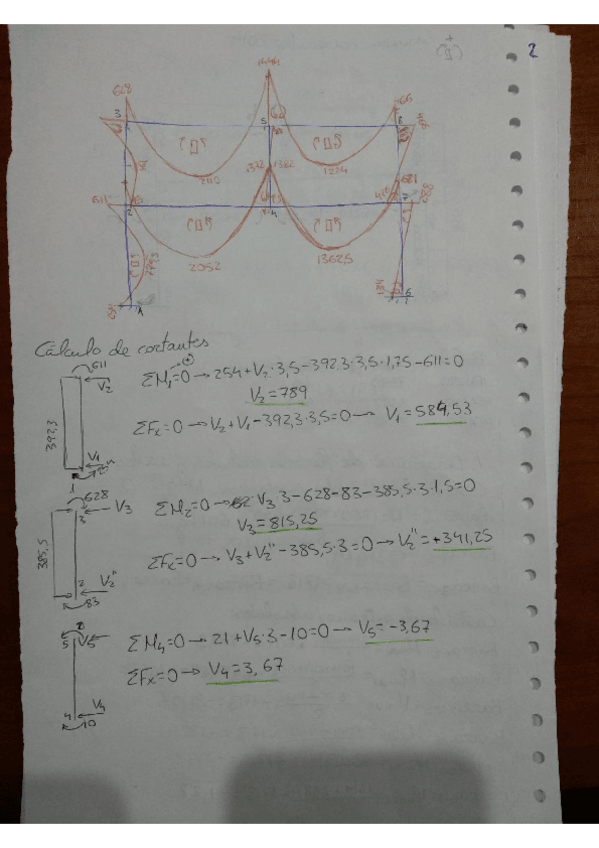 2
1444
628
766
3
5
62
8
766
1372
1382
1224
611
2
4
621
7
688
2052
1362,5
A
6
Cálculo de cortantes
611
V2
392,3
V1
1
ΣM1=0 → 254+V2·3,5-392,3·3,5·1,75-611=0
V2=789
ΣFx=0 → V2+V1-392,3·3,5=0 → V1=584,53
628
V3
3
385,5
2
V2"
83
ΣM2=0 → V3·3-628-83-385,5·3·1,5=0
V3=815,25
ΣFx=0 → V3+V2"-385,5·3=0 → V2"=+341,25
5
V5
4
V4
10
ΣM4=0 → 21+V5·3-10=0 → V5=-3,67
ΣFx=0 → V4=3,67